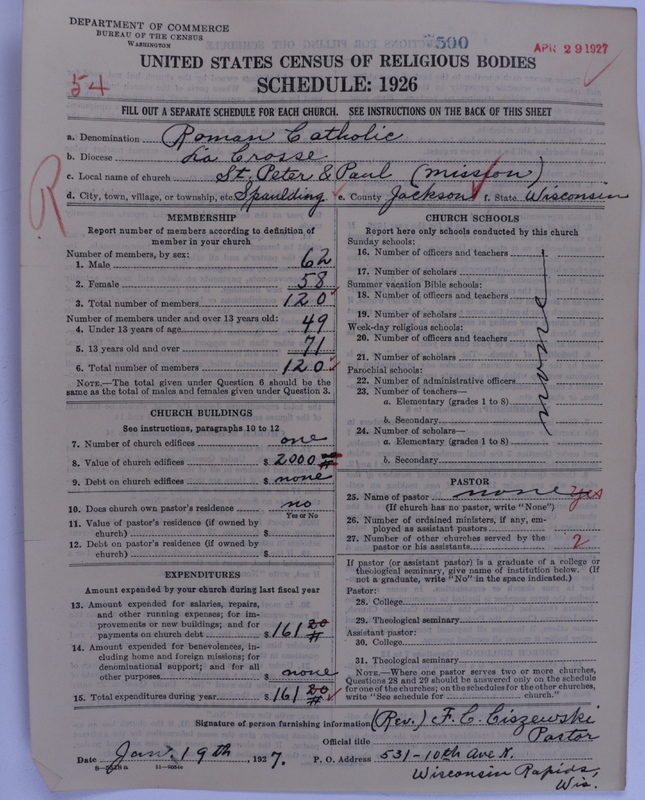 DEPARTMENT OF COMMERCE
BUREAU OF THE CENSUS
WASHINGTON
590
APR 29 1927
UNITED STATES CENSUS OF RELIGIOUS BODIES
54
SCHEDULE: 1926
FILL OUT A SEPARATE SCHEDULE FOR EACH CHURCH. SEE INSTRUCTIONS ON THE BACK OF THIS SHEET
R
a. Denomination Roman Catholic
b. Diocese La Crosse
c. Local name of church St. Peter & Paul (mission)
d. City, town, village, or township, etc. Spaulding e. County Jackson f. State Wisconsin
MEMBERSHIP
Report number of members according to definition of
member in your church
Number of members, by sex:
1. Male 62
2. Female 58
3. Total number of members 120
Number of members under and over 13 years old:
4. Under 13 years of age 49
5. 13 years old and over 71
6. Total number of members 120
NOTE.—The total given under Question 6 should be
same as the total of males and females given under Question 3.
CHURCH BUILDINGS
See instructions, paragraphs 10 to 12
7. Number of church edifices one
8. Value of church edifices $ 2000
9. Debt on church edifices $ none
10. Does church own pastor's residence no
Yes or No
11. Value of pastor's residence (if owned by
church) $
12. Debt on pastor's residence (if owned by
church) $
EXPENDITURES
Amount expended by your church during last fiscal year
13. Amount expended for salaries, repairs,
and other running expenses; for im-
provements or new buildings; and for
payments on church debt $ 161 20
14. Amount expended for benevolences, in-
cluding home and foreign missions; for
denominational support; and for all
other purposes none
15. Total expenditures during year $ 161 20
CHURCH SCHOOLS
Report here only schools conducted by this church
Sunday schools:
16. Number of officers and teachers
17. Number of scholars
Summer vacation Bible schools:
18. Number of officers and teachers
19. Number of scholars
Week-day religious schools:
20. Number of officers and teachers
21. Number of scholars
Parochial schools:
22. Number of administrative officers
23. Number of teachers—
a. Elementary (grades 1 to 8)
b. Secondary
24. Number of scholars—
a. Elementary (grades 1 to 8)
b. Secondary
none
PASTOR
25. Name of pastor none yes
(If church has no pastor, write "None")
26. Number of ordained ministers, if any, em-
ployed as assistant pastors
27. Number of other churches served by the
pastor or his assistants 2
If pastor (or assistant pastor) is a graduate of a college or
theological seminary, give name of institution below. (If
not a graduate, write "No" in the space indicated.)
Pastor:
28. College
29. Theological seminary
Assistant pastor:
30. College
31. Theological seminary
NOTE.—Where one pastor serves two or more churches,
Questions 28 and 29 should be answered only on the schedule
for one of the churches; on the schedules for the other churches,
write "See schedule for church."
Signature of person furnishing information (Rev.) F. C. Ciszewski
Official title Pastor
Date Jan. 19th, 1927. P. O. Address 531-10th Ave N.
Wisconsin Rapids,
Wis.